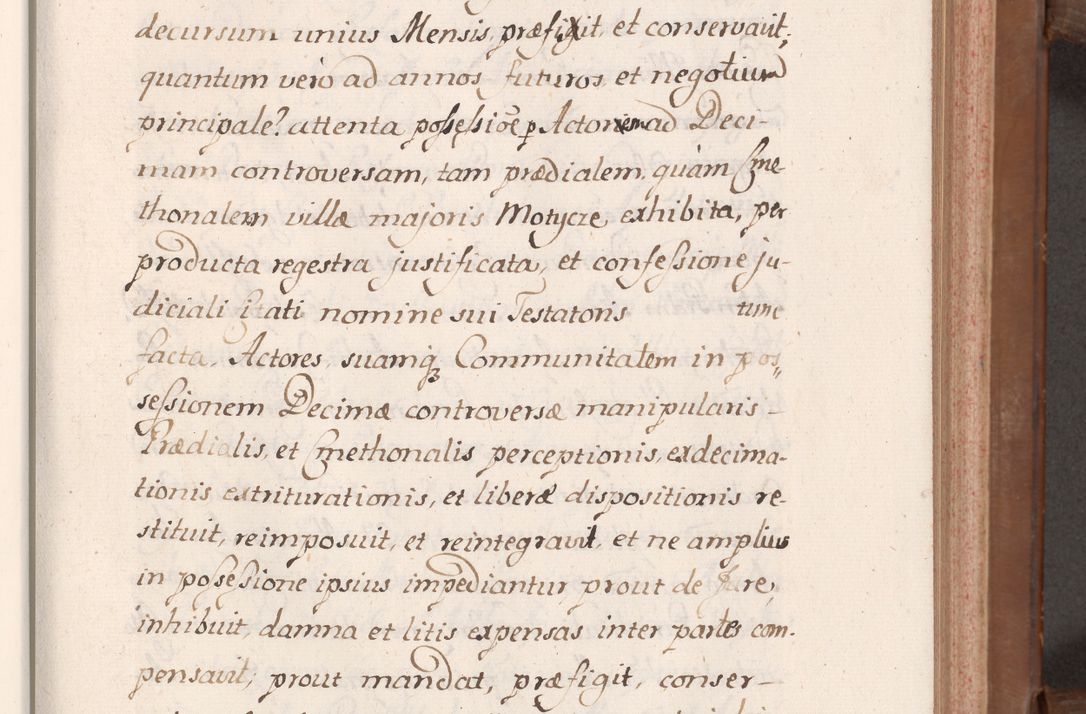 decursum unius Mensis, præfixit, et conservavit;
quantum vero ad annos futuros, et negotium
principale? attenta possessiõe p Actorem ad Deci-
mam controversam, tam prædialem, quàm Cme
thonalem villæ majoris Motycze exhibita, per
producta regestra justificata, et confessione ju-
diciali Citati nomine sui Testatoris tunc
facta. Actores, suamq3 Communitatem in pos„
sessionem Decimæ controversæ manipularis -
Prædialis, et Cmethonalis perceptionis, exdecima-
tionis extriturationis, et liberæ dispositionis re-
stituit, reimposuit, et reintegravit, et ne amplius
in possessione ipsius impediantur, prout de Jure,
inhibuit, damna et litis expensas inter partes com-
pensavit; prout mandat, præfigit, conser-